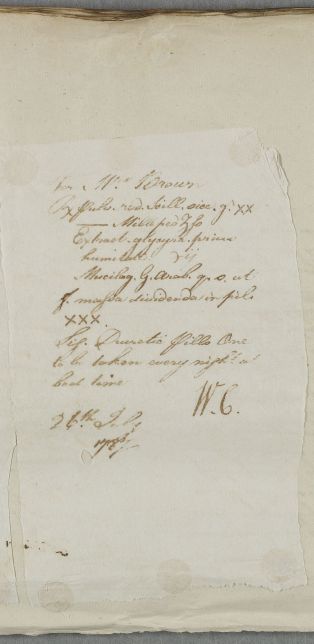 For Wm Brown
Rx Pulv. rad. Scill. sicc. gr xx
— Milliped ʒſs
Extract. glycyrr. prius
humitatt. ʒij
Mucilag. G. Arab. q. s. ut
f. massa dividenda in pil.
XXX.
Sig. Diuretic Pills One
to be taken every night at
bed time
W. C.
26th